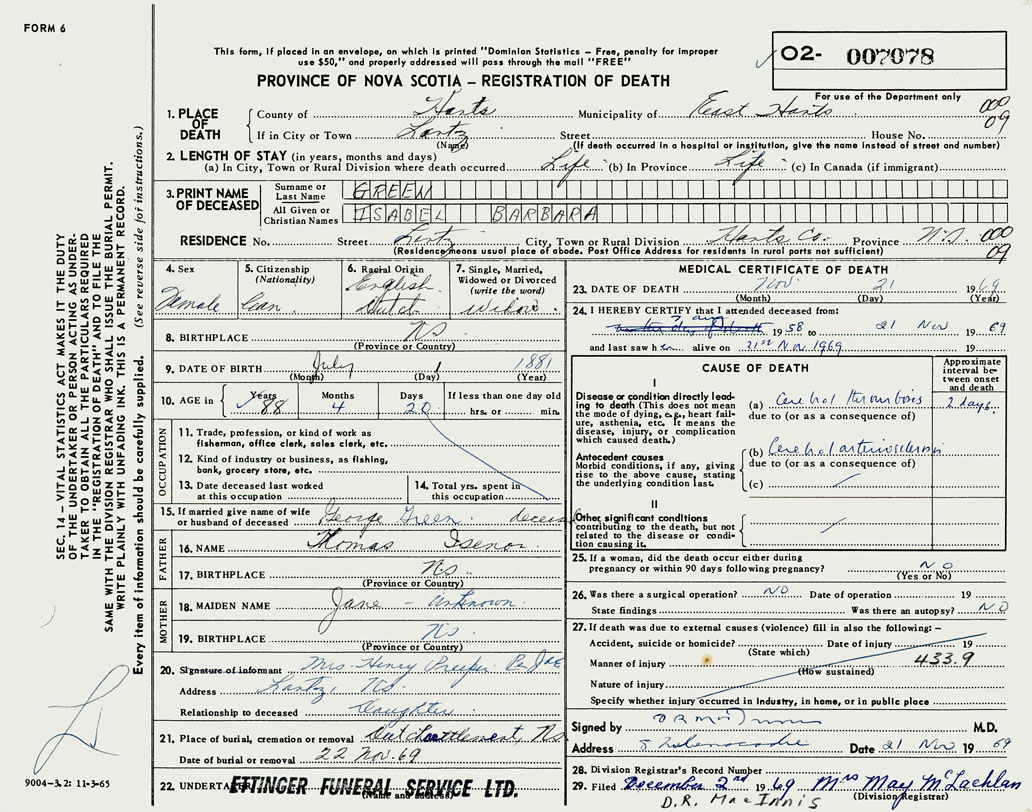 FORM 6
This form, if placed in an envelope, on which is printed "Dominion Statistics – Free, penalty for improper
use $50," and properly addressed will pass through the mail "FREE"
PROVINCE OF NOVA SCOTIA – REGISTRATION OF DEATH
O2- 007078
For use of the Department only
1. PLACE OF DEATH County of Hants Municipality of East Hants 000
If in City or Town Lantz Street House No. 09
(Name) (If death occurred in a hospital or institution, give the name instead of street and number)
2. LENGTH OF STAY (in years, months and days)
(a) In City, Town or Rural Division where death occurred Life (b) In Province Life (c) In Canada (if immigrant)
3. PRINT NAME OF DECEASED Surname or Last Name GREEN
All Given or Christian Names ISABEL BARBARA
RESIDENCE No. Street Lantz City, Town or Rural Division Hants Co. Province N.S. 000
(Residence means usual place of abode. Post Office Address for residents in rural parts not sufficient) 09
4. Sex Female
5. Citizenship (Nationality) Can.
6. Racial Origin English Dutch
7. Single, Married, Widowed or Divorced (write the word) Widow
8. BIRTHPLACE NS
(Province or Country)
9. DATE OF BIRTH July 1 1881
(Month) (Day) (Year)
10. AGE in Years 88 Months 4 Days 20 If less than one day old hrs. or min.
OCCUPATION
11. Trade, profession, or kind of work as
fishermen, office clerk, sales clerk, etc.
12. Kind of industry or business, as fishing,
bank, grocery store, etc.
13. Date deceased last worked
at this occupation
14. Total yrs. spent in
this occupation
15. If married give name of wife
or husband of deceased George Green deceas
FATHER
16. NAME Thomas Isenor
17. BIRTHPLACE NS
(Province or Country)
MOTHER
18. MAIDEN NAME Jane – Unknown
19. BIRTHPLACE NS
(Province or Country)
20. Signature of informant Mrs. Henry Preeper
Address Lantz, NS
Relationship to deceased Daughter
21. Place of burial, cremation or removal Dutch Settlement, NS
Date of burial or removal 22 Nov. 69
22. UNDERTAKER ETTINGER FUNERAL SERVICE LTD.
(Name and address)
MEDICAL CERTIFICATE OF DEATH
23. DATE OF DEATH Nov. 21 1969
(Month) (Day) (Year)
24. I HEREBY CERTIFY that I attended deceased from:
1958 to 21 Nov 1969
and last saw her alive on 21st Nov 1969
CAUSE OF DEATH
Approximate interval between onset and death
I
Disease or condition directly leading to death (This does not
the mode of dying, e.g., heart failure, asthenia, etc. It means the
disease, injury, or complication
which caused death.)
(a) Cerebral thrombosis 2 days.
due to (or as a consequence of)
Antecedent causes
Morbid conditions, if any, giving
rise to the above cause, stating
the underlying condition last.
(b) Cerebral arteriosclerosis
due to (or as a consequence of)
(c)
II
Other significant conditions
contributing to the death, but not
related to the disease or condition causing it.
25. If a woman, did the death occur either during
pregnancy or within 90 days following pregnancy? NO
(Yes or No)
26. Was there a surgical operation? NO Date of operation 19
State findings Was there an autopsy? NO
27. If death was due to external causes (violence) fill in also the following: –
Accident, suicide or homicide? Date of injury 19
(State which)
Manner of injury 433.9
(How sustained)
Nature of injury
Specify whether injury occurred in industry, in home, or in public place
Signed by M.D.
Address Shubenacadie Date 21 Nov 1969
28. Division Registrar's Record Number
29. Filed December 2nd 1969 Mrs May McLachlan
(Division Registrar)
D.R. MacInnis
SEC. 14 – VITAL STATISTICS ACT MAKES IT THE DUTY
OF THE UNDERTAKER OR PERSON ACTING AS UNDER-
TAKER TO OBTAIN ALL THE PARTICULARS REQUIRED
IN THE "REGISTRATION OF DEATH" AND TO FILE THE
SAME WITH THE DIVISION REGISTRAR WHO SHALL ISSUE THE BURIAL PERMIT.
WRITE PLAINLY WITH UNFADING INK. THIS IS A PERMANENT RECORD.
Every item of information should be carefully supplied. (See reverse side for instructions.)
9004-3.2: 11-3-65